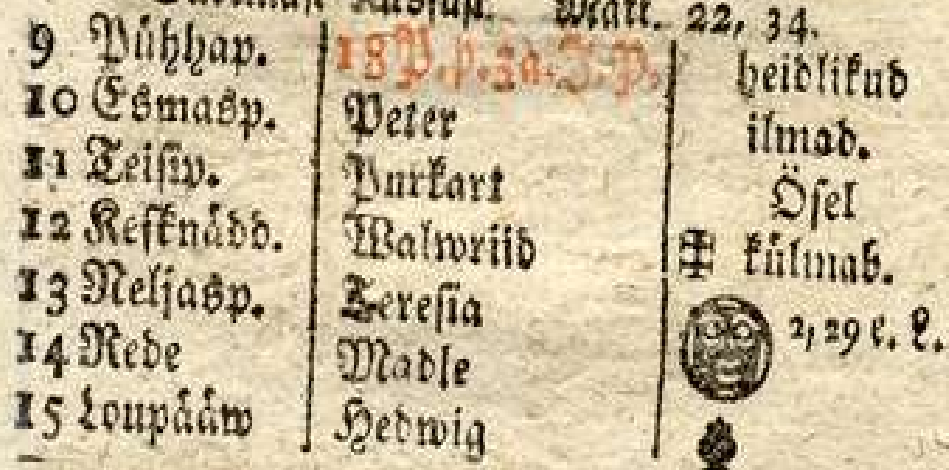 Matt. 22, 34.
9 Pühhap. 18 P. p. 3a. J. P. heidlikud
10 Esmasp. Peter ilmad.
11 Teisip. Purkart Ösel
12 Kesknädd. Walwriid külmab.
13 Neljasp. Teresia
14 Rede Madle 2, 29 e. L.
15 Loupääw Hedwig